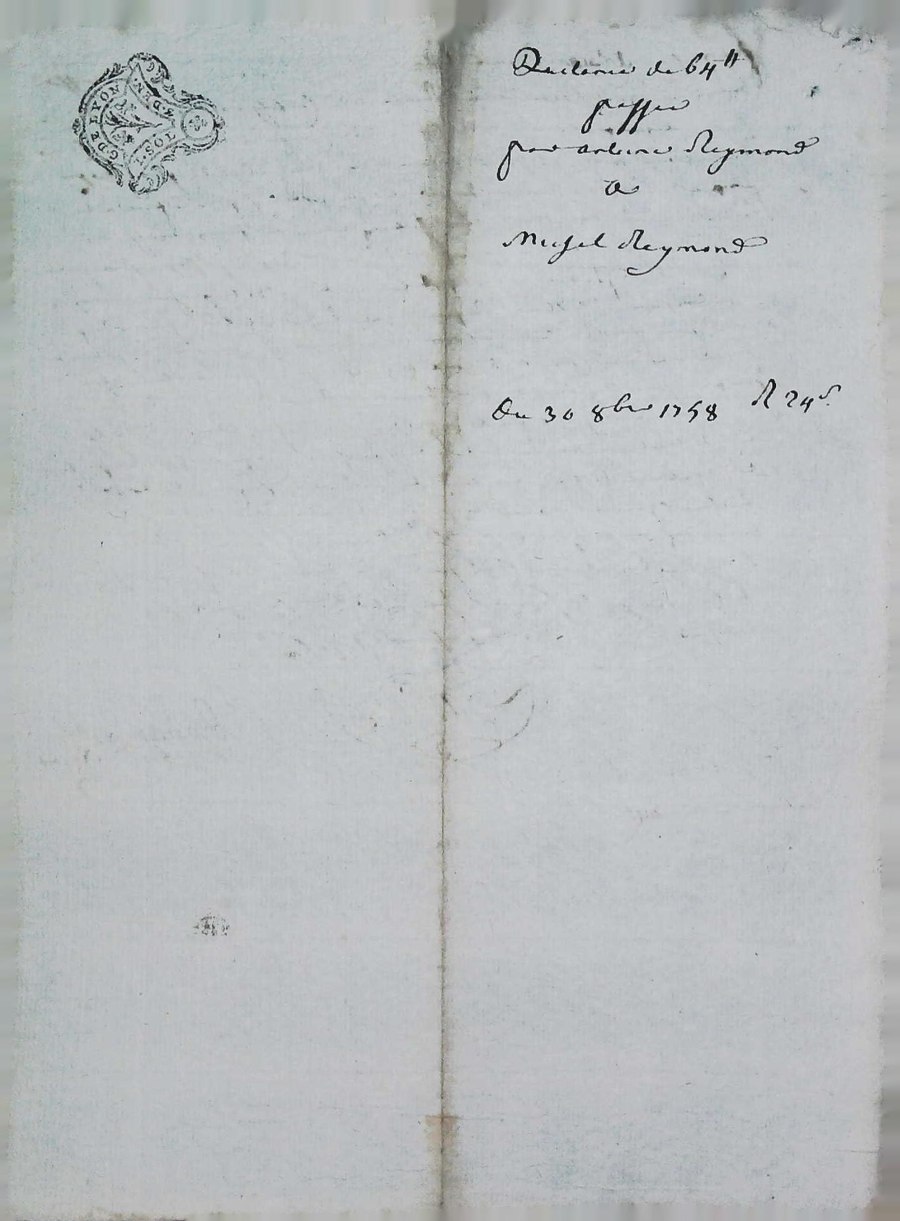 G DE LYON
1. SOL
S. DEN.
de 64 ᵗᵗ
passée
par antoine Reymond
a
Michel Reymond
Du 30 8bre 1758 R 24 s.